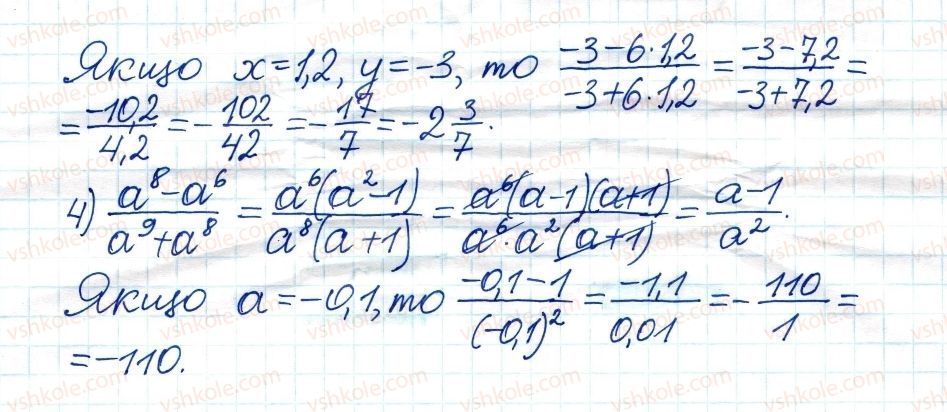 Якщо x=1,2, y=-3, то (-3-6·1,2)/(-3+6·1,2) = (-3-7,2)/(-3+7,2) =
= -10,2/4,2 = -102/42 = -17/7 = -2 3/7.
4) (a⁸-a⁶)/(a⁹+a⁸) = a⁶(a²-1)/a⁸(a+1) = a⁶(a-1)(a+1)/a⁶·a²(a+1) = (a-1)/a².
Якщо a=-0,1, то (-0,1-1)/(-0,1)² = -1,1/0,01 = -110/1 =
= -110.